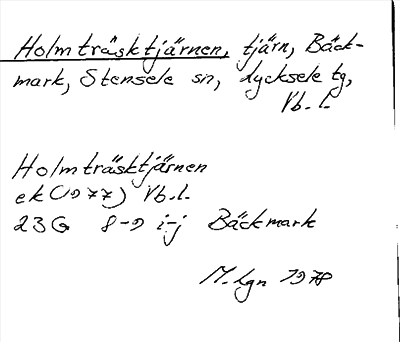 Holmträsktjärnen, tjärn, Bäck-
mark, Stensele sn, Lycksele tg,
Vb. l.
Holmträsktjärnen
ek (1977) Vb. l.
23G 8-9 i-j Bäckmark
M. Lgn 1978